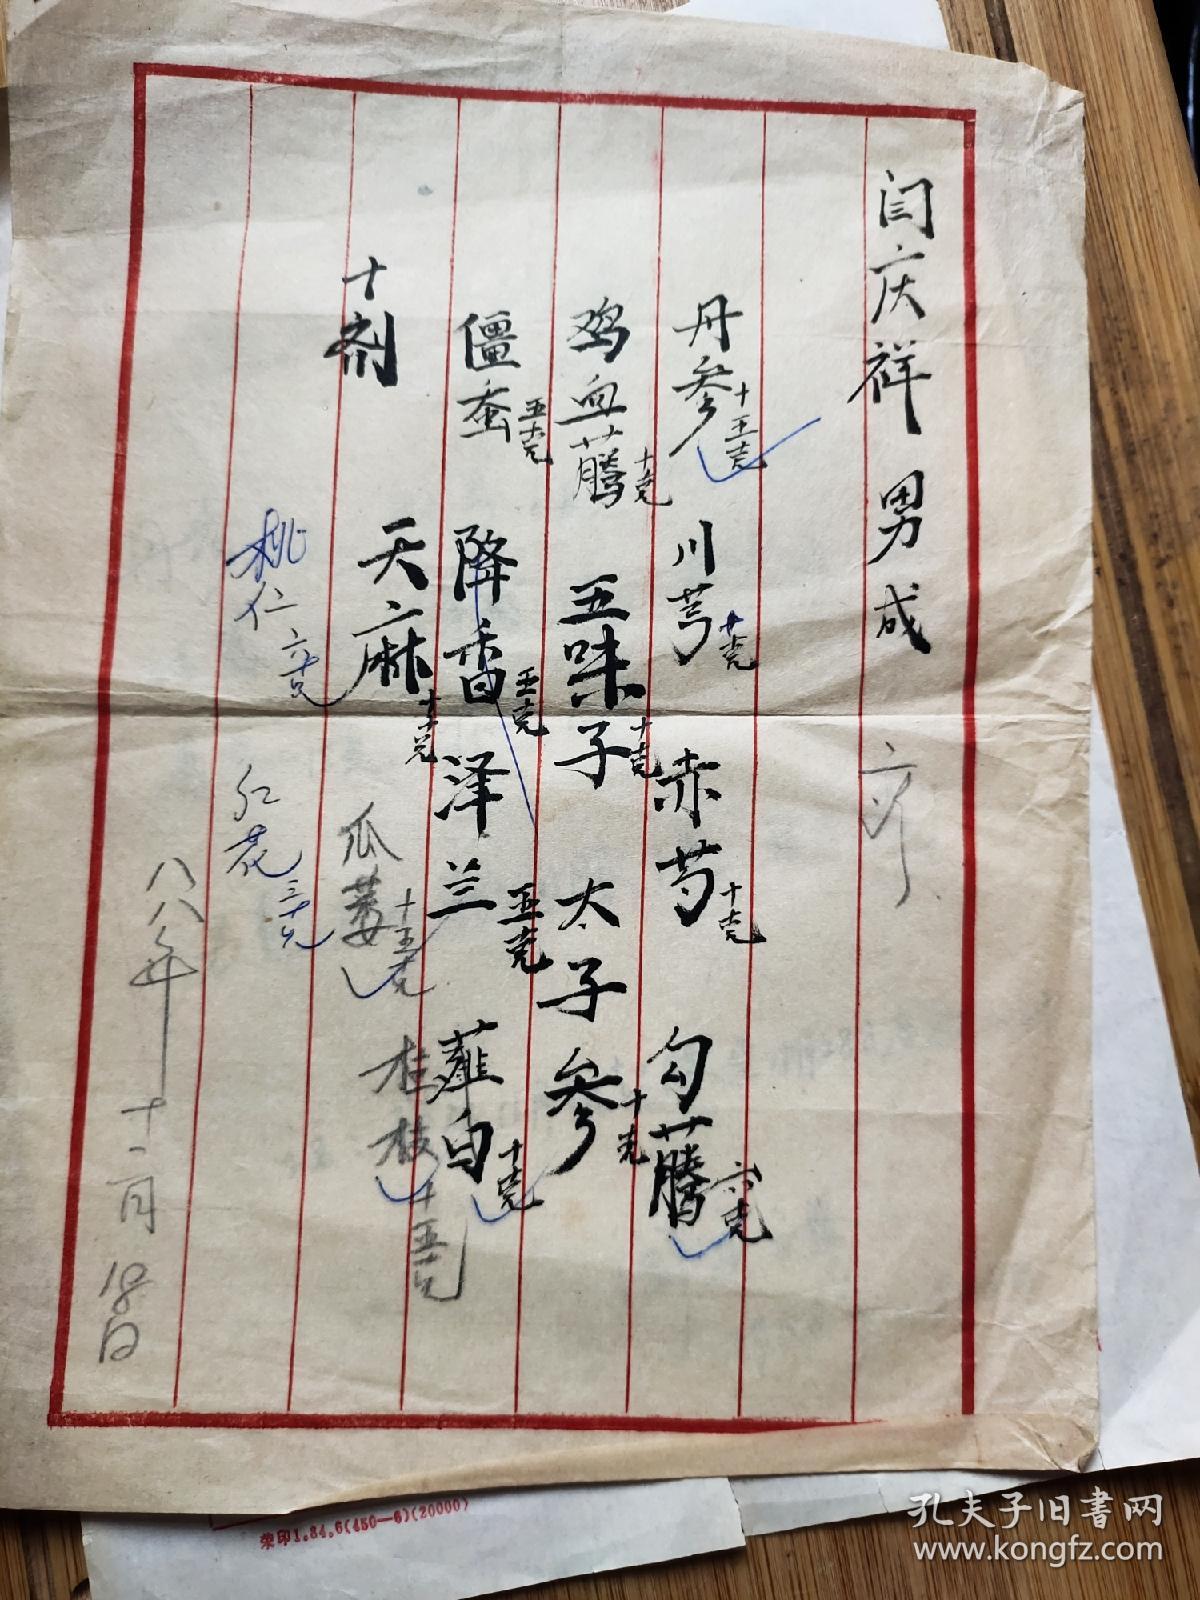 闫庆祥 男 成
丹参 十五克 川芎 十克 赤芍 十克 勾藤 六克
鸡血藤 十克 五味子 十克 太子参 十克
僵蚕 五克 降香 五克 泽兰 五克 薤白 十克
十剂 天麻 十克 瓜蒌 十五克 桂枝 十五克
桃仁 六克 红花 三克
八八年十二月18日
荣印1.84.6(450—6)(20000)
孔夫子旧书网
www.kongfz.com